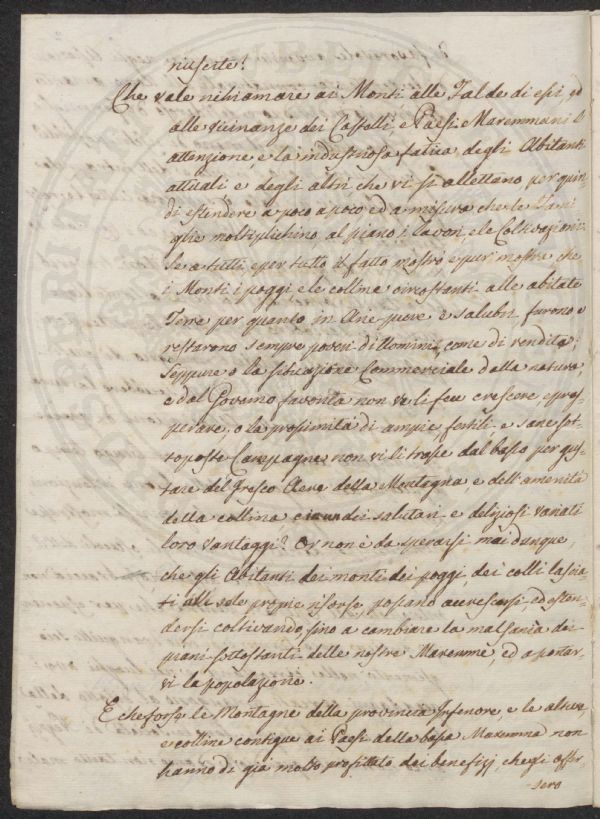 riuscite?
Che vale richiamare ai Monti alle Falde di essi, ed
alle vicinanze dei Castelli e Paesi Maremmani l'
attenzione, e la industriosa fatica degli Abitanti
attuali e degli altri che vi si allettano per quin-
di estendere a poco a poco ed a misura che le Fami
glie moltiplichino al piano i lavori, e le Coltivazioni:
Se a tutti, e per tutto il fatto mostrò e pur mostra che
i Monti i poggi, e le colline circostanti alle abitate
Terre per quanto in Arie pure e salubri furono e
restarono sempre poveri di Uomini come di vendite?
Seppure o la situazione Commerciale dalla natura,
e dal Governo favorita non ve li fece crescere e pros-
perare, o la prossimità di ampie fertili e sane sot-
toposte Campagne non vi li trasse dal basso per gus-
tare del fresco Aere della Montagna, e dell'amenità
della collina e salutari e deliziosi variati
loro vantaggi? Or non è da sperarsi mai dunque,
che gli Abitanti dei monti dei poggi dei colli lascia-
ti alle sole proprie risorse, possano accrescersi, ed esten-
dersi coltivando, sino a cambiare la malsania dei
piani sottostanti delle nostre Maremme, ed a portar-
vi la popolazione.
E che forse le Montagne della provincia Inferiore, e le alture,
e colline contigue ai Paesi della bassa Maremma non
hanno di già molto profittato dei benefizj, che gli offer-
sero